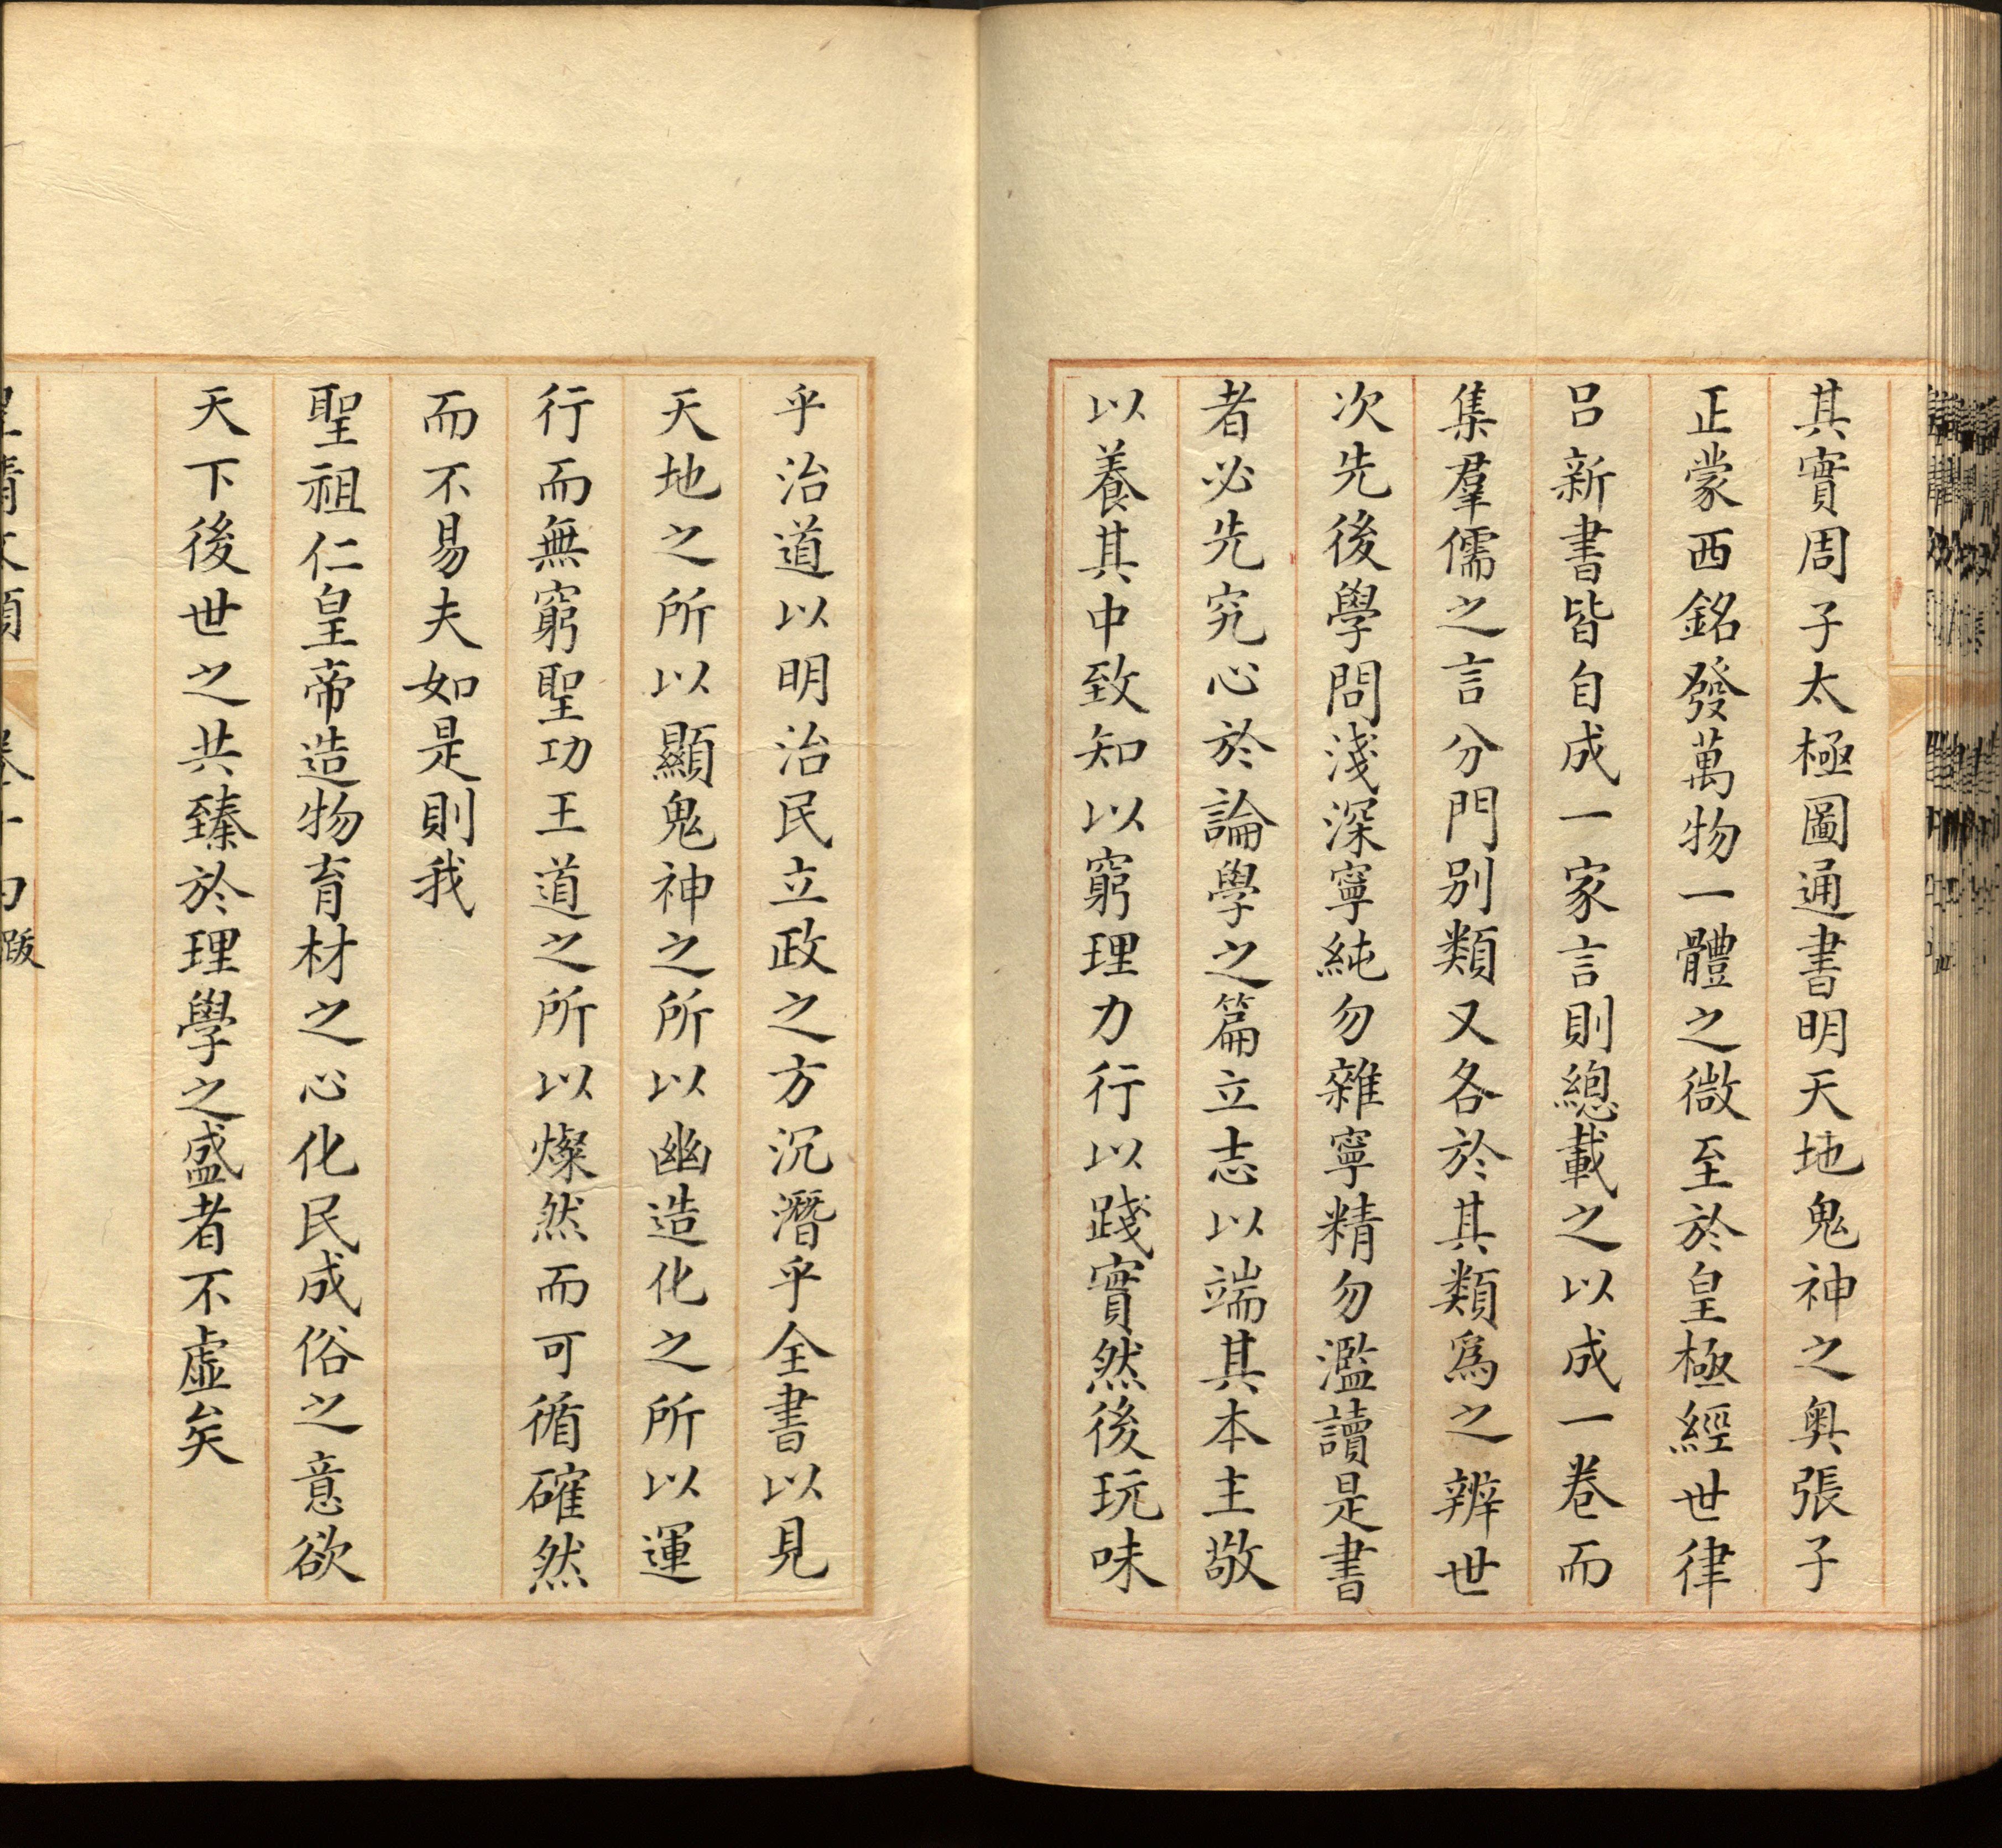 其實周子太極圖通書明天地鬼神之奥張子
正蒙西銘發萬物一體之微至於皇極經世律
吕新書皆自成一家言則總載之以成一卷而
集羣儒之言分門別類又各於其類爲之辨世
次先後學問淺深寧純勿雜寧精勿濫讀是書
者必先究心於論學之篇立志以端其本主敬
以養其中致知以窮理力行以踐實然後玩味
乎治道以明治民立政之方沉潛乎全書以見
天地之所以顯鬼神之所以幽造化之所以運
行而無窮聖功王道之所以燦然而可循確然
而不易夫如是則我
聖祖仁皇帝造物育材之心化民成俗之意欲
天下後世之共臻於理學之盛者不虛矣